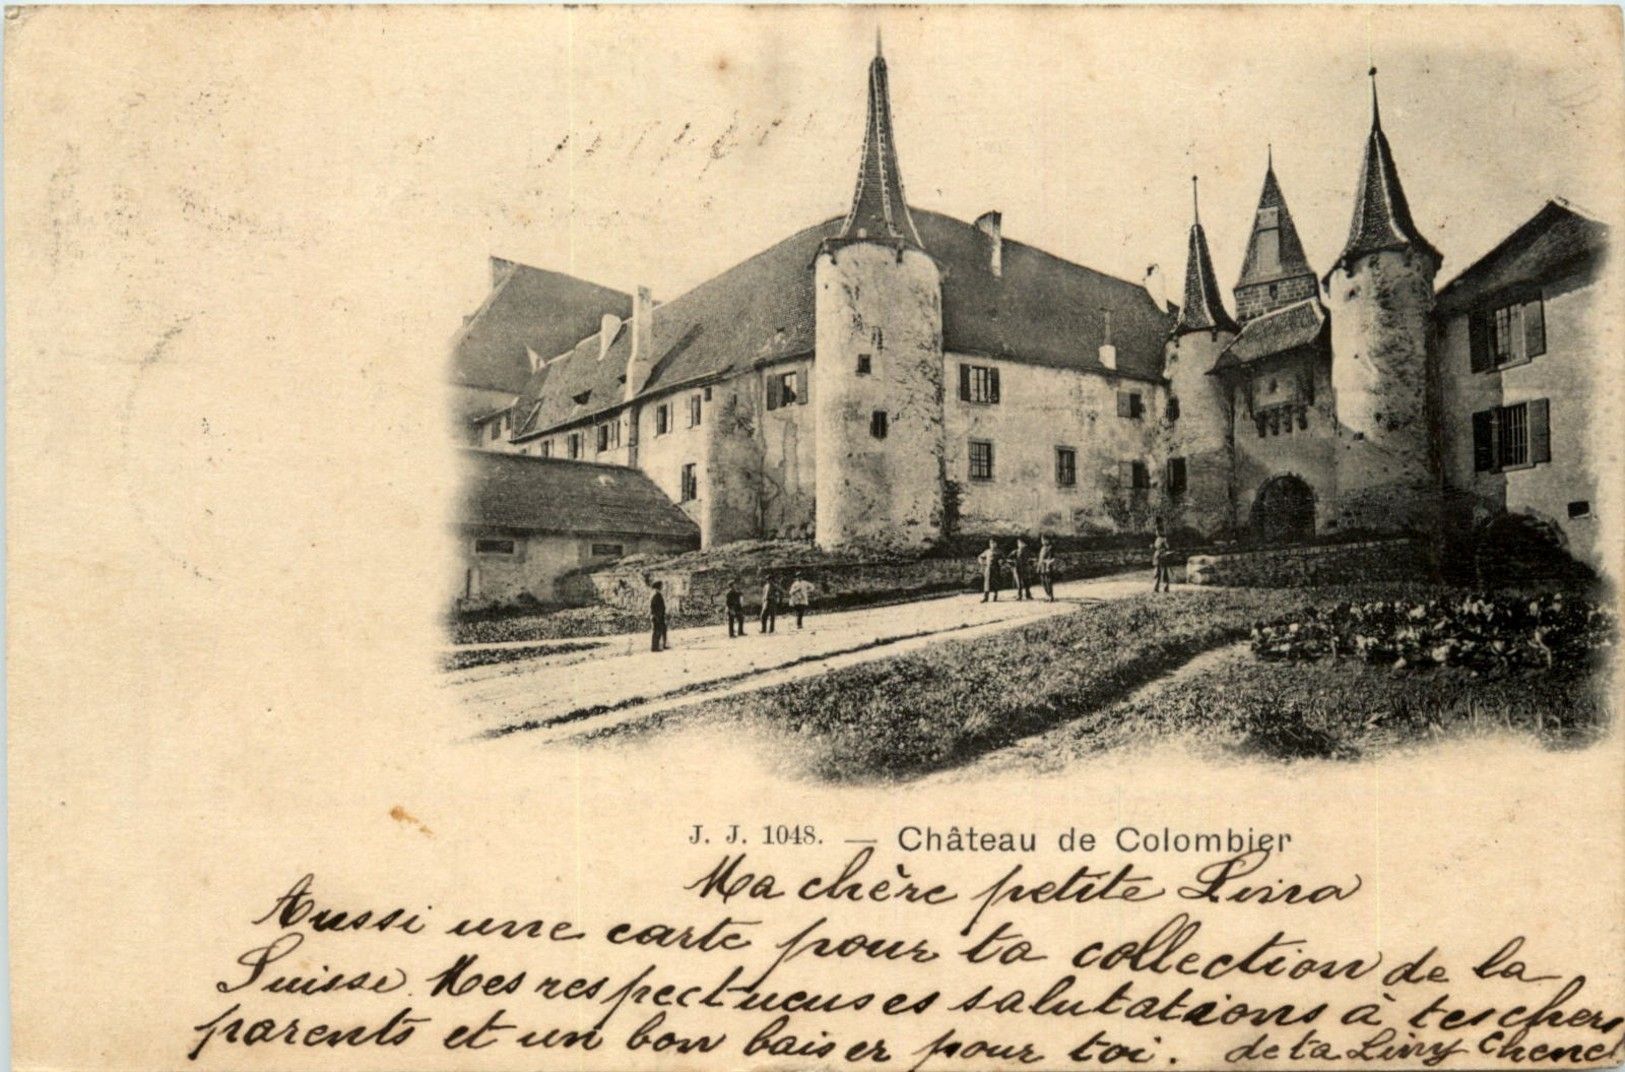 J. J. 1048. — Château de Colombier
Ma chère petite
Aussi une carte pour ta collection de la
Suisse. Mes respectueuses salutations à tes chers
parents et un bon baiser pour toi. de ta